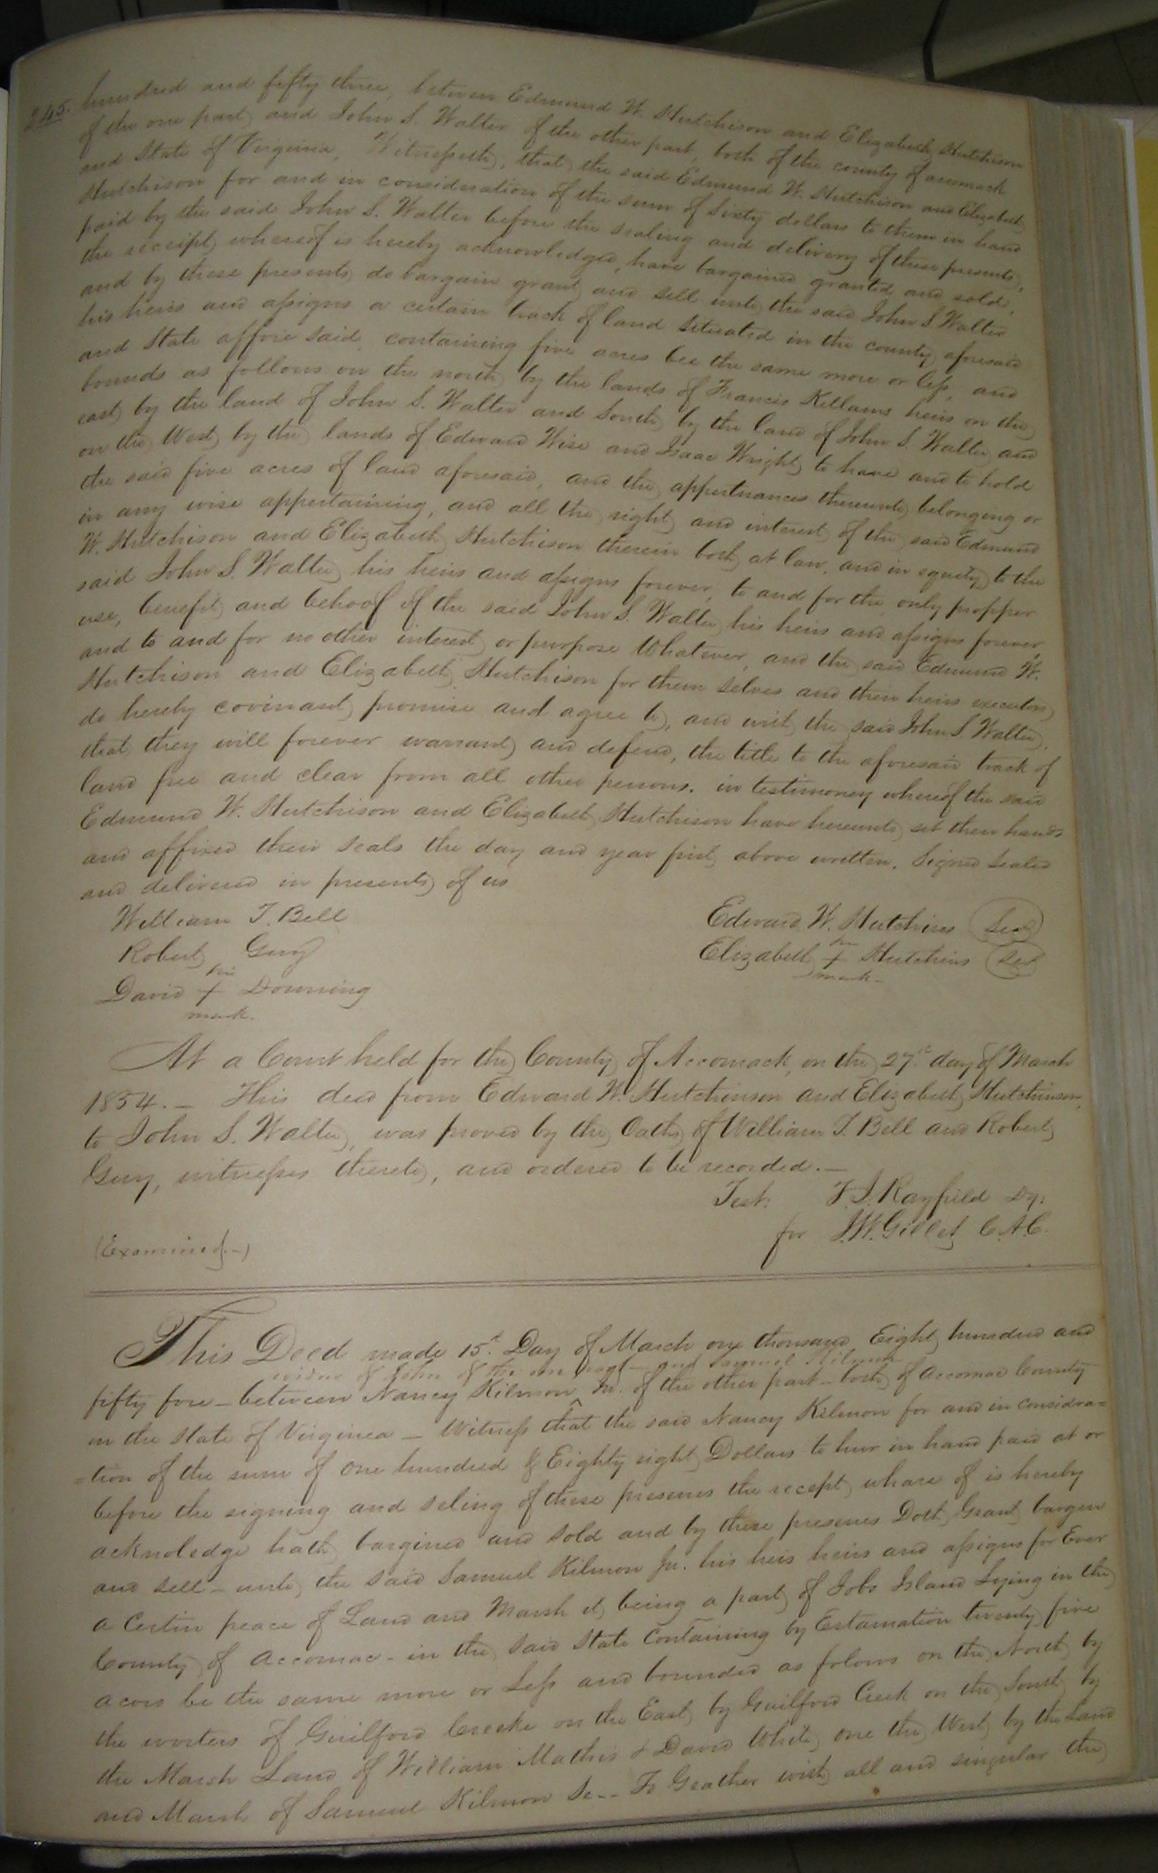 245. hundred and fifty three, between Edmund W. Hutchison and Elizabeth Hutchison
of the one part and John S. Walter of the other part, both of the county of accomack
and State of Virginia, Witnesseth, that the said Edmund W. Hutchison and Elizabeth
Hutchison for and in consideration of the sum of Sixty dollars to them in hand
paid by the said John S. Walter before the sealing and delivery of these presents,
the receipt whereof is hereby acknowledged, have bargained granted and sold,
and by these presents do bargain grant and sell unto the said John S Walter
his heirs and assigns a certain track of land situated in the county aforesaid
and State affore said, containing five acres bee the same more or less, and
bounds as follows on the north by the lands of Francis Kellams heirs on the
east by the land of John S. Walter and South by the land of John S. Walter and
on the West by the lands of Edward Wise and Isaac Wright to have and to hold
the said five acres of land aforesaid, and the appertnances thereunto belonging or
in any wise appertaining, and all the right and interest of the said Edmund
W. Hutchison and Elizabeth Hutchison therein both at law, and in equity to the
said John S. Walter his heirs and assigns forever, to and for the only propper
use, benefit and behoof of the said John S. Walter his heirs and assigns forever,
and to and for no other interest or purpose Whatever, and the said Edmund W.
Hutchison and Elizabeth Hutchison for them selves and their heirs executors
do hereby covinant promise and agree to, and with the said John S Walter,
that they will forever warrant and defend, the title to the aforesaid track of
land free and clear from all other persons. in testimoney whereof the said
Edmund W. Hutchison and Elizabeth Hutchison have hereunto set their hands
and affixed their seals the day and year first above written. Signed Sealed
and delivered in presents of us
William T. Bell Edward W. Hutchins Seal
Robert Guy Elizabeth her + mark Hutchins Seal
David his + mark Downing
At a Court held for the County of Accomack, on the 27th day of March
1854. — This deed from Edward W. Hutchinson and Elizabeth Hutchinson,
to John S. Walter, was proved by the Oaths of William T. Bell and Robert
Guy, witnesses thereto, and ordered to be recorded. —
Test: F. J. Rayfield Dy:
for J. W. Gillet C. A. C.
(Examined. -)
This Deed made 15th Day of March one thousand Eight hundred and
widow of John of the one part — and Samuel Kilmon
fifty fore — between Nancy Kilmon ^ Jr. of the other part — both of Accomac County
in the State of Virginea — Witness that the said Nancy Kilmon for and in considra=
=tion of the sum of one hundred & Eighty eight Dollars to hur in hand paid at or
before the signing and seling of these presenes the recept whare of is hereby
acknoledge hath bargined and sold and by these presenes Doth Grant bargen
and sell — unto the said Samuel Kilmon Jr. his heis heirs and assigns for Ever
a Certin peace of Land and Marsh it being a part of Jobs Island Lying in the
County of Accomac - in the said State Containing by Estamation twenty five
acors be the same more or Less and bounded as folows on the North by
the worters of Guilford Creeke on the East by Guilford Creek on the South by
the Marsh Land of William Mathis & David White one the West by the Land
and Marsh of Samuel Kilmon Sr -- To Geather with all and singular the